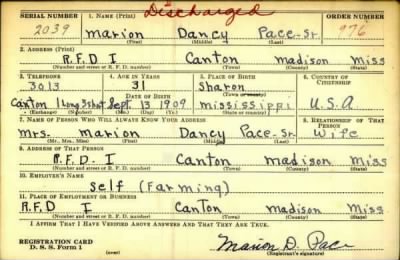 Discharged
SERIAL NUMBER 1. NAME (Print) ORDER NUMBER
2039 Marion Dancy Pace-Sr. 976
(First) (Middle) (Last)
2. ADDRESS (Print)
R.F.D I Canton Madison Miss
(Number and street or R. F. D. number) (Town) (County) (State)
3. TELEPHONE 4. AGE IN YEARS 5. PLACE OF BIRTH 6. COUNTRY OF CITIZENSHIP
3013 31 Sharon
DATE OF BIRTH (Town or county)
Canton 1 Long 3 Short Sept 13 1909 Mississippi U.S.A
(Exchange) (Number) (Mo.) (Day) (Yr.) (State or country)
7. NAME OF PERSON WHO WILL ALWAYS KNOW YOUR ADDRESS 8. RELATIONSHIP OF THAT PERSON
Mrs. Marion Dancy Pace-Sr. Wife
(Mr., Mrs., Miss) (First) (Middle) (Last)
9. ADDRESS OF THAT PERSON
R.F.D-I Canton Madison Miss
(Number and street or R. F. D. number) (Town) (County) (State)
10. EMPLOYER'S NAME
Self (Farming)
11. PLACE OF EMPLOYMENT OR BUSINESS
R.F.D I Canton Madison Miss.
(Number and street or R. F. D. number) (Town) (County) (State)
I AFFIRM THAT I HAVE VERIFIED ABOVE ANSWERS AND THAT THEY ARE TRUE.
REGISTRATION CARD
D. S. S. Form 1 (over) Marion D. Pace
(Registrant's signature)